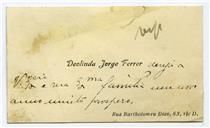 Deolinda Jorge Ferrer deseja a
V. Excia e sua Exma família um novo
ano muito próspero.
Rua Bartholomeu Dias, 63, r/c D.